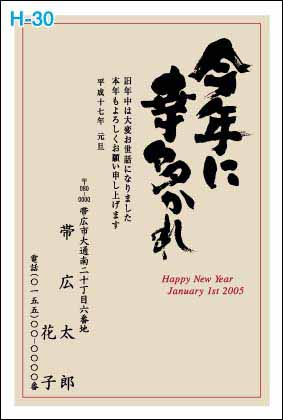 H-30
今年に
幸多かれ
旧年中は大変お世話になりました
本年もよろしくお願い申し上げます
平成十七年 元旦
Happy New Year
January 1st 2005
〒080-0000
帯広市大通南二十丁目六番地
帯広 太郎
花子
電話(〇一五五)〇〇-〇〇〇〇番